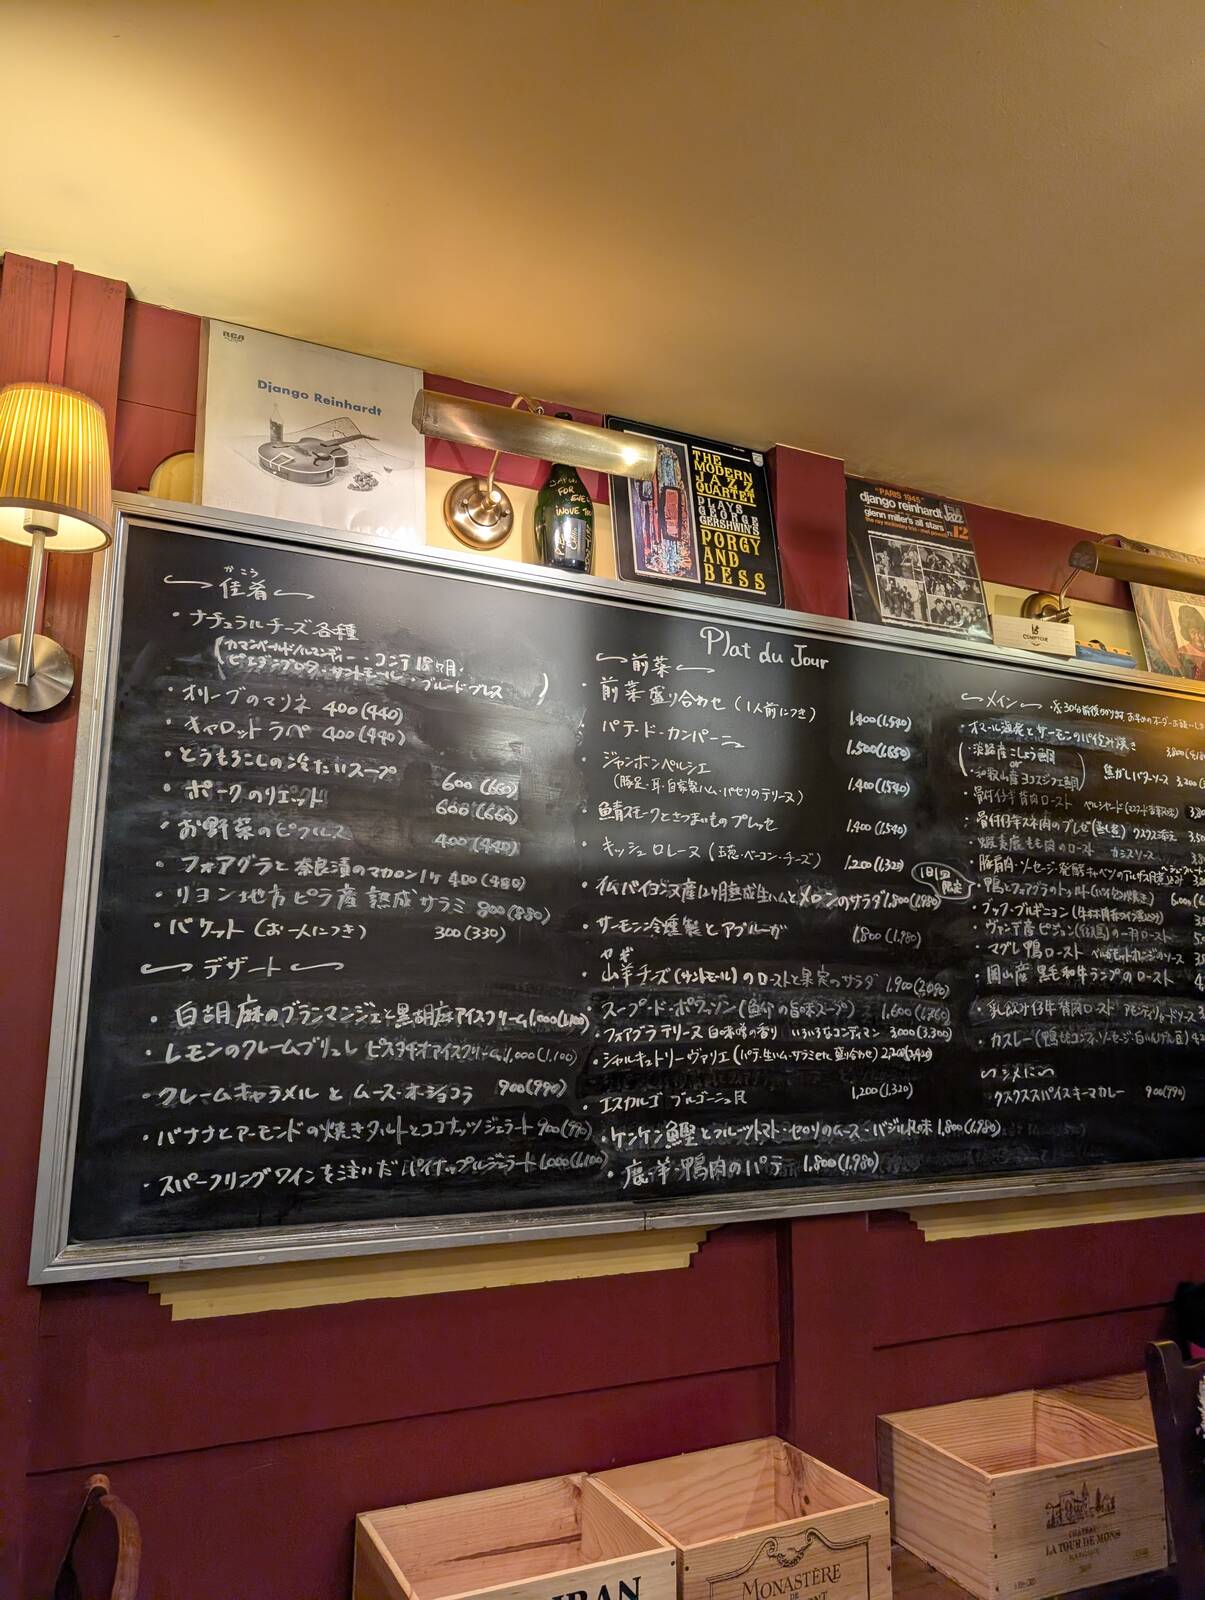 RCA
Django Reinhardt
JAPAN
FOR
THE
MODERN
JAZZ
QUARTET
PLAYS
GEORGE
GERSHWIN'S
PORGY
AND
BESS
"PARIS 1945"
django reinhardt
glenn miller's all stars
Jazz
12
COMPTOIR
かこう
佳肴
・ナチュラルチーズ各種
(カマンベールドノルマンディー・コンテ18ヶ月・
・サントモール・ブルードブレス)
・オリーブのマリネ 400(440)
・キャロットラペ 400(440)
・とうもろこしの冷たいスープ 600(660)
・ポークのリエット 600(660)
・お野菜のピクルス 400(440)
・フォアグラと奈良漬のマカロン1ケ 400(480)
・リヨン地方ピラ産熟成サラミ 800(880)
・バケット(お一人につき) 300(330)
デザート
・白胡麻のブランマンジェと黒胡麻アイスクリーム 1,000(1,100)
・レモンのクレームブリュレ ピスタチオアイスクリーム 1,000(1,100)
・クレームキャラメルとムース・オ・ショコラ 900(990)
・バナナとアーモンドの焼きタルトとココナッツジェラート 900(990)
・スパークリングワインを注いだパイナップルジェラート 1,000(1,100)
Plat du Jour
前菜
・前菜盛り合わせ(1人前につき) 1,400(1,540)
・パテ・ド・カンパーニュ 1,500(1,650)
・ジャンボンペルシエ 1,400(1,540)
(豚足・耳・自家製ハム・パセリのテリーヌ)
・鯖スモークとさつまいものプレッセ 1,400(1,540)
・キッシュロレーヌ(玉葱・ベーコン・チーズ) 1,200(1,320)
・松バイヨンヌ産12ヶ月熟成生ハムとメロンのサラダ 1,800(1,980)
限定
・サーモン冷燻製とアブルーガ 1,800(1,980)
ヤギ
・山羊チーズ(サントモール)のローストと果実のサラダ 1,900(2,090)
・スープ・ド・ポワッソン(魚介の旨味スープ) 1,600(1,760)
・フォアグラテリーヌ 白味噌の香り いろいろなコンディマン 3,000(3,300)
・シャルキュトリーヴァリエ(パテ・生ハム・サラミetc盛り合わせ) 2,200(2,420)
・エスカルゴ ブルゴーニュ風 1,200(1,320)
・ケンケン鰹とフルーツトマト・セロリのムース・バジル風味 1,800(1,980)
・鹿・羊・鴨肉のパテ 1,800(1,980)
メイン ※30分前後かかります お早めのオーダーお願い
・オマール海老とサーモンのパイ包み焼き
淡路産こしょう鯛
or
和歌山産ヨコスジフエ鯛 焦がしバターソース
・骨付仔羊背肉ロースト ペルシヤード
・骨付仔羊スネ肉のブレゼ クスクス添え
・蝦夷鹿もも肉のロースト カシスソース
・豚肩肉・ソーセージ・発酵キャベツのアルザス風煮込み
・鴨とフォアグラのトゥルト(パイ包み焼き)
・ブッフ・ブルギニョン(牛ホホ肉赤ワイン煮込み)
・ヴァンデ産ピジョン の一羽ロースト
・マグレ鴨ロースト ベルガモットオレンジのソース
・岡山産 黒毛和牛ランプのロースト
・乳飲み仔牛背肉ロースト
・カスレー(鴨ももコンフィ・ソーセージ・白いんげん豆)
〆に
クスクススパイスキーマカレー 900(990)
MONASTÈRE
DE
CHATEAU
LA TOUR DE MONS
MARGAUX